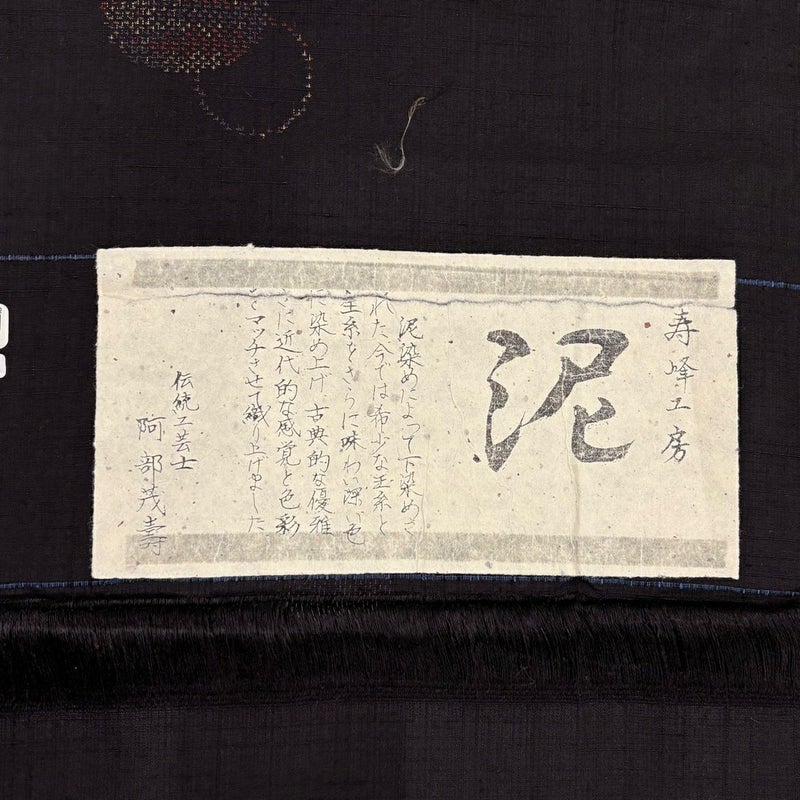 寿峰工房
泥
泥染めによって下染めさ
れた今では希少な玉糸と
玉糸をさらに味わい深い色
に染め上げ、古典的な優雅
さに近代的な感覚と色彩
をマッチさせて織り上げました
伝統工芸士
阿部茂壽